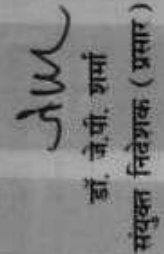 डॉ. जे.पी. शर्मा
संयुक्त निदेशक ( प्रसार )